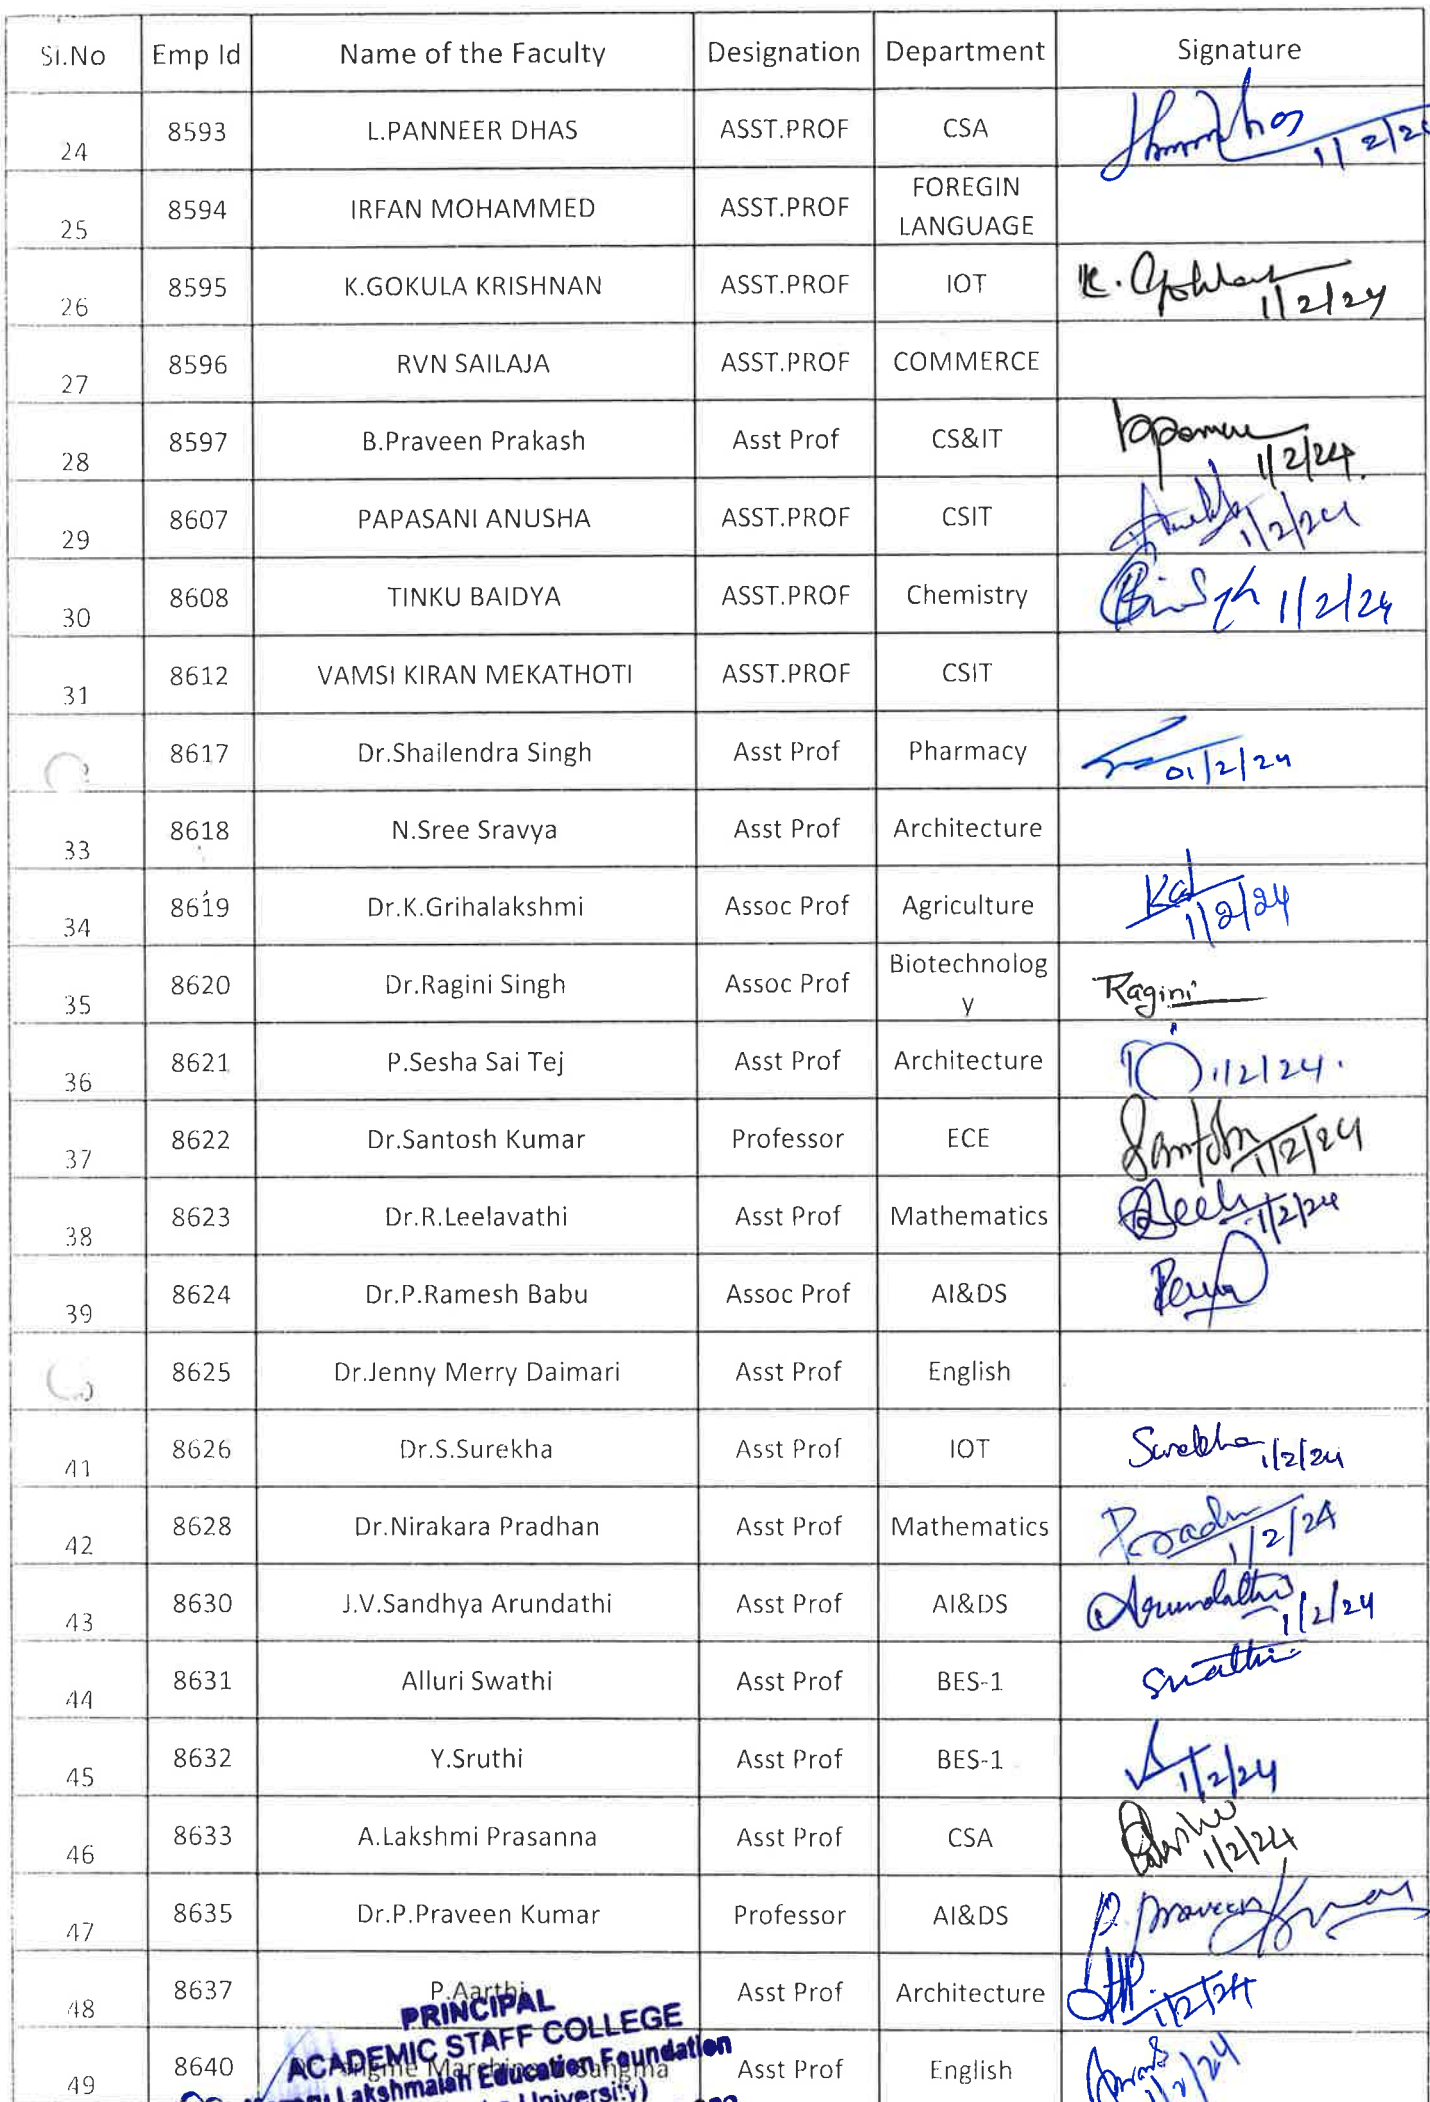 Sl.No Emp Id Name of the Faculty Designation Department Signature
24 8593 L.PANNEER DHAS ASST.PROF CSA 1/2/2
25 8594 IRFAN MOHAMMED ASST.PROF FOREGIN
LANGUAGE
26 8595 K.GOKULA KRISHNAN ASST.PROF IOT K. 1/2/24
27 8596 RVN SAILAJA ASST.PROF COMMERCE
28 8597 B.Praveen Prakash Asst Prof CS&IT 1/2/24.
29 8607 PAPASANI ANUSHA ASST.PROF CSIT 1/2/24
30 8608 TINKU BAIDYA ASST.PROF Chemistry 1/2/24
31 8612 VAMSI KIRAN MEKATHOTI ASST.PROF CSIT
8617 Dr.Shailendra Singh Asst Prof Pharmacy 01/2/24
33 8618 N.Sree Sravya Asst Prof Architecture
34 8619 Dr.K.Grihalakshmi Assoc Prof Agriculture 1/2/24
35 8620 Dr.Ragini Singh Assoc Prof Biotechnolog
y Ragini
36 8621 P.Sesha Sai Tej Asst Prof Architecture 1/2/24.
37 8622 Dr.Santosh Kumar Professor ECE Santosh 1/2/24
38 8623 Dr.R.Leelavathi Asst Prof Mathematics 1/2/24
39 8624 Dr.P.Ramesh Babu Assoc Prof AI&DS
8625 Dr.Jenny Merry Daimari Asst Prof English
41 8626 Dr.S.Surekha Asst Prof IOT Surekha 1/2/24
42 8628 Dr.Nirakara Pradhan Asst Prof Mathematics 1/2/24
43 8630 J.V.Sandhya Arundathi Asst Prof AI&DS Arundathi 1/2/24
44 8631 Alluri Swathi Asst Prof BES-1 Swathi
45 8632 Y.Sruthi Asst Prof BES-1 1/2/24
46 8633 A.Lakshmi Prasanna Asst Prof CSA 1/2/24
47 8635 Dr.P.Praveen Kumar Professor AI&DS P. Praveen Kumar
48 8637 P.Aarthi Asst Prof Architecture 1/2/24
PRINCIPAL
ACADEMIC STAFF COLLEGE
49 8640 Sangma Asst Prof English 1/2/24
Lakshmaiah Education Foundation
University)